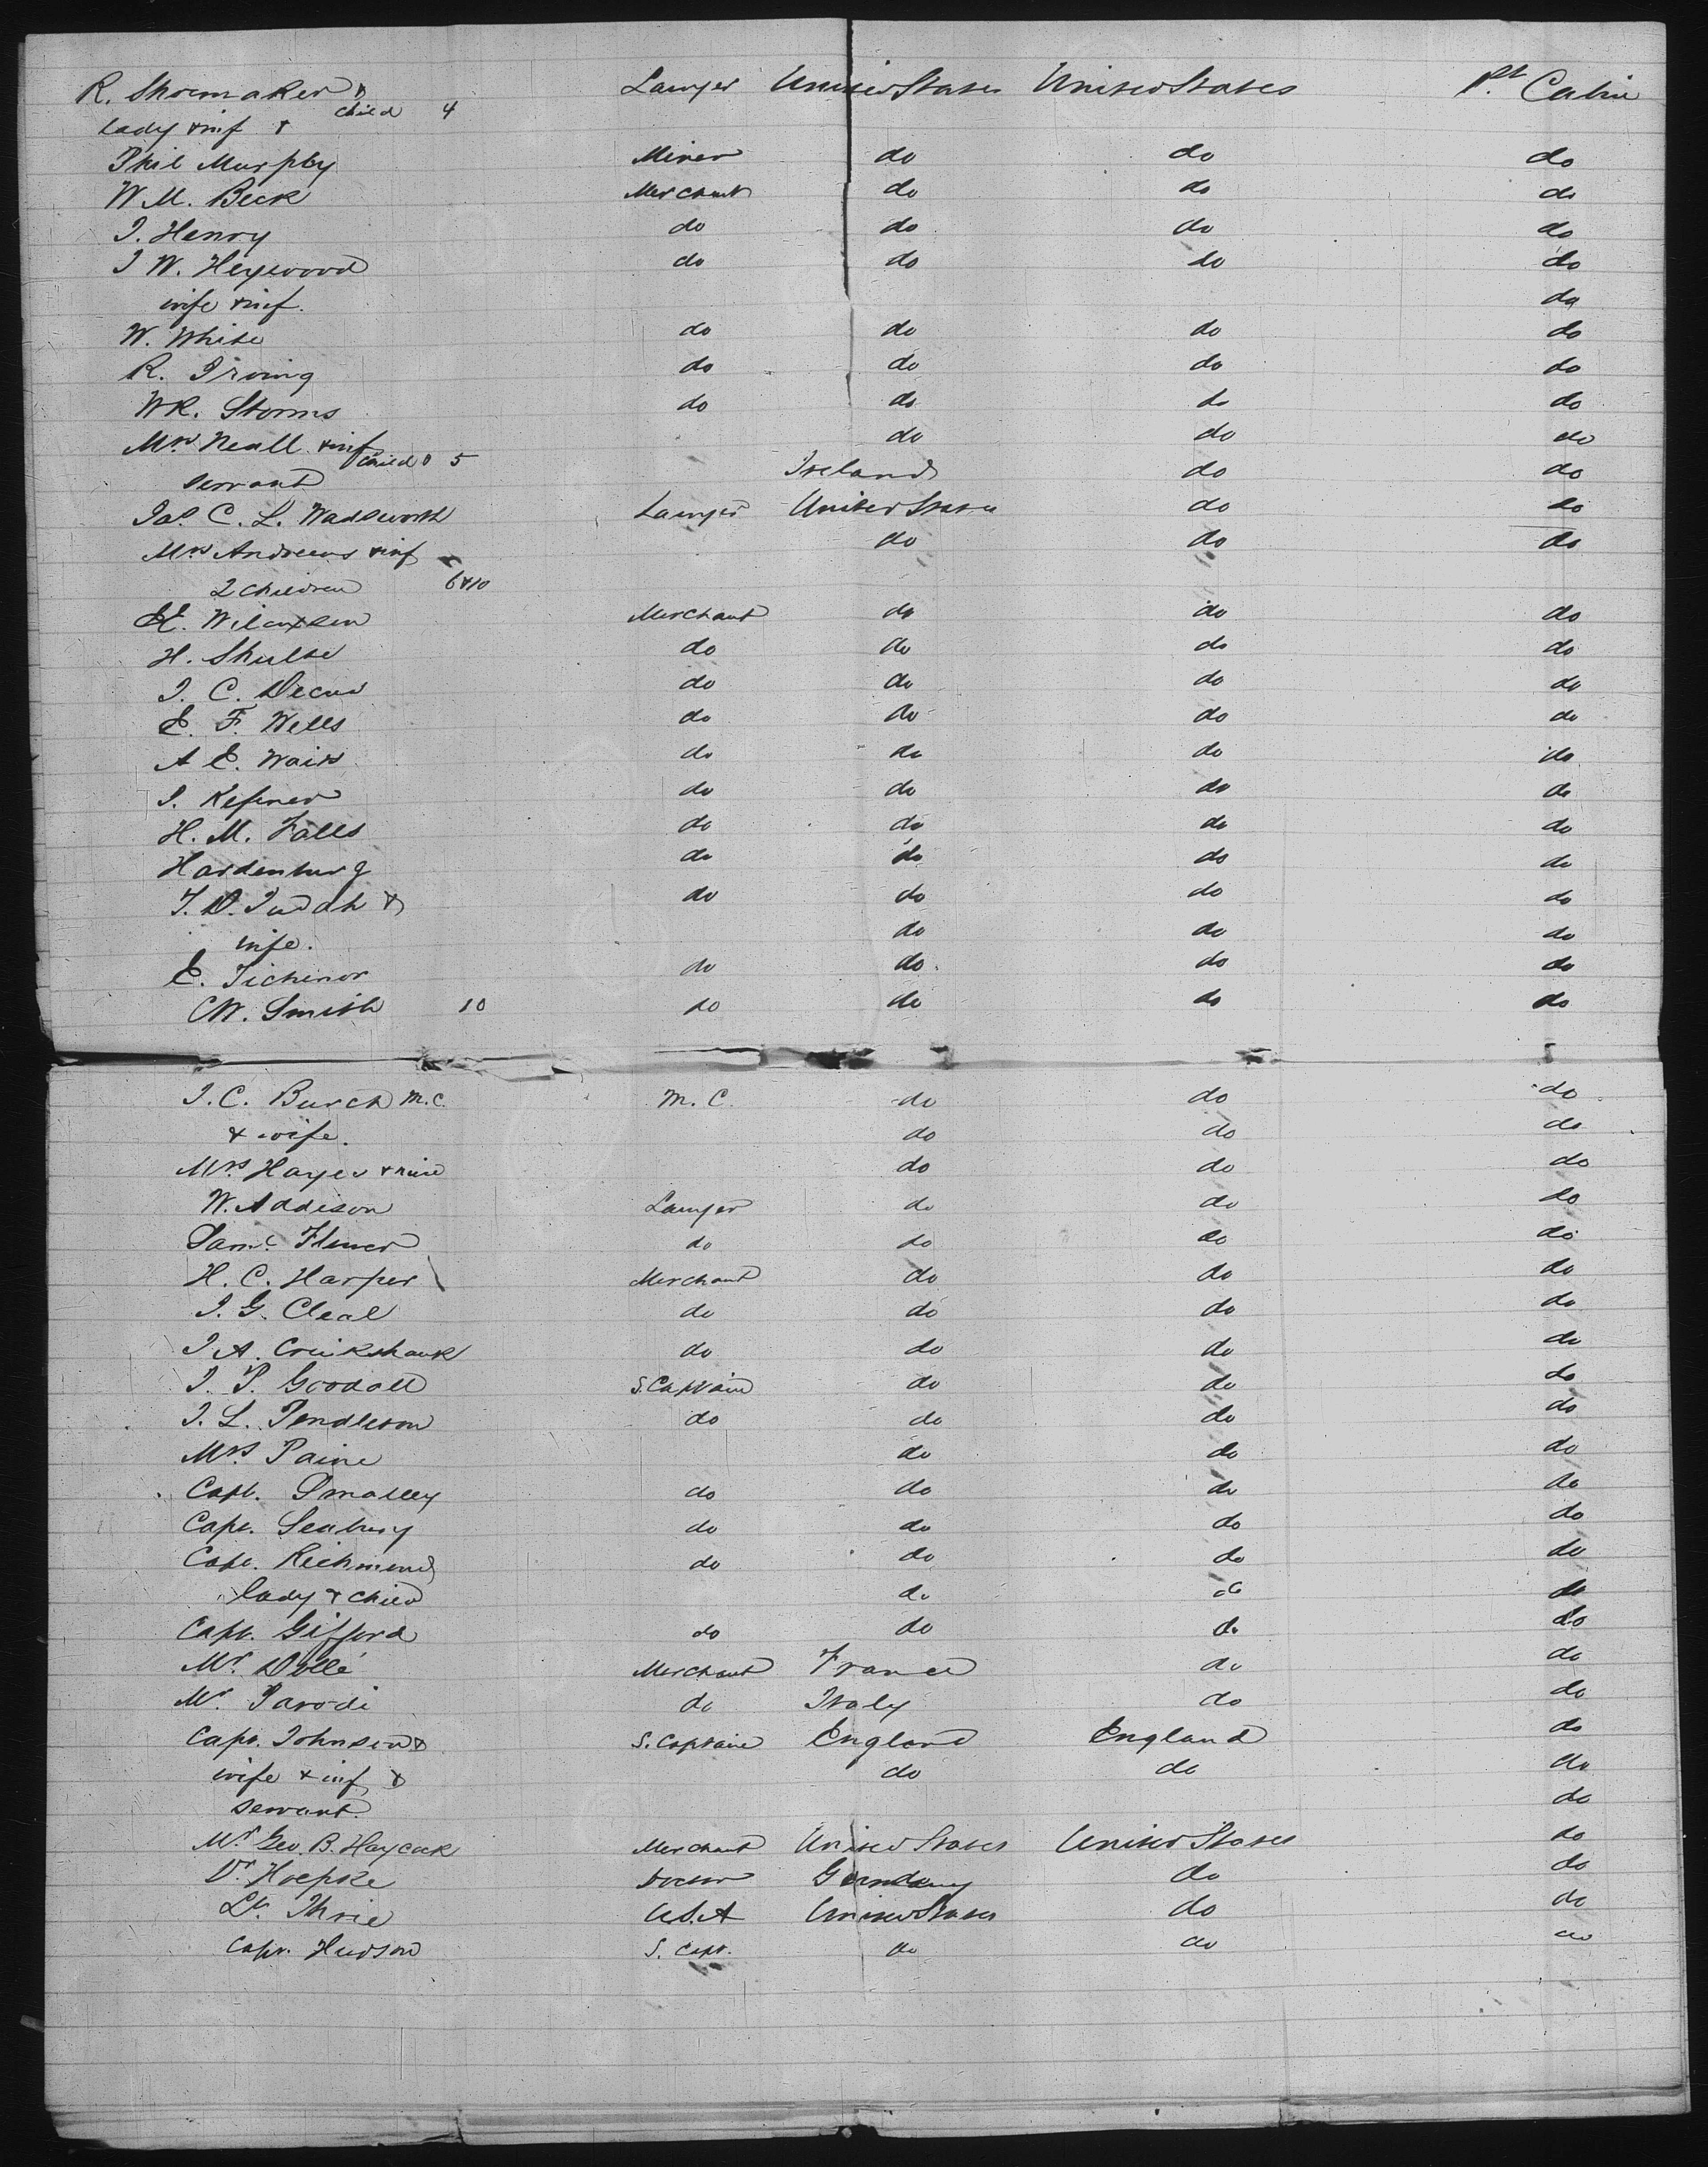 R. Shoemaker & Lawyer United States United States 1st Cabin
lady & inf & child 4
Phil Murphy Miner do do do
W.M. Beck Merchant do do do
J. Henry do do do do
J W. Heywood do do do do
wife & inf. do
W. White do do do do
R. Irving do do do do
WR. Storms do do do do
Mrs Neall & inf do do do
child & 5
servant Ireland do do
Jas C. L. Wadsworth Lawyer United States do do
Mrs Andrews & inf do do do
2 children 6 & 10
E. Wilcoxson Merchant do do do
H. Shulte do do do do
J. C. do do do do
E. F. Wells do do do do
A E. Wait do do do do
J. Kefener do do do do
H. M. Falls do do do do
Hardenburg do do do do
T. D. Judah & do do do do
wife. do do do
E. Tichenor do do do do
CW. Smith 10 do do do do
J. C. Burch M.C. M.C. do do do
& wife. do do do
Mrs Hayes & niece do do do
W. Addison Lawyer do do do
Saml do do do do
H. C. Harper Merchant do do do
J. G. Cleal do do do do
J A. Cruikshank do do do do
J. P. Goodall S. Captain do do do
J. L. Pendleton do do do do
Mrs Paine do do do
Capt. Smalley do do do do
Capt. Seabury do do do do
Capt. Richmond do do do do
lady & child do do do
Capt. Gifford do do do do
Mr Dollé Merchant France do do
Mr Parodi do Italy do do
Capt. Johnson & S. Captain England England do
wife & inf, & do do do
servant. do
Mr Geo. B. Haycock Merchant United States United States do
Dr Hoepke Doctor Germany do do
Lt. Thrie U.S.A United States do do
Capt. Hudson S. Capt. do do do